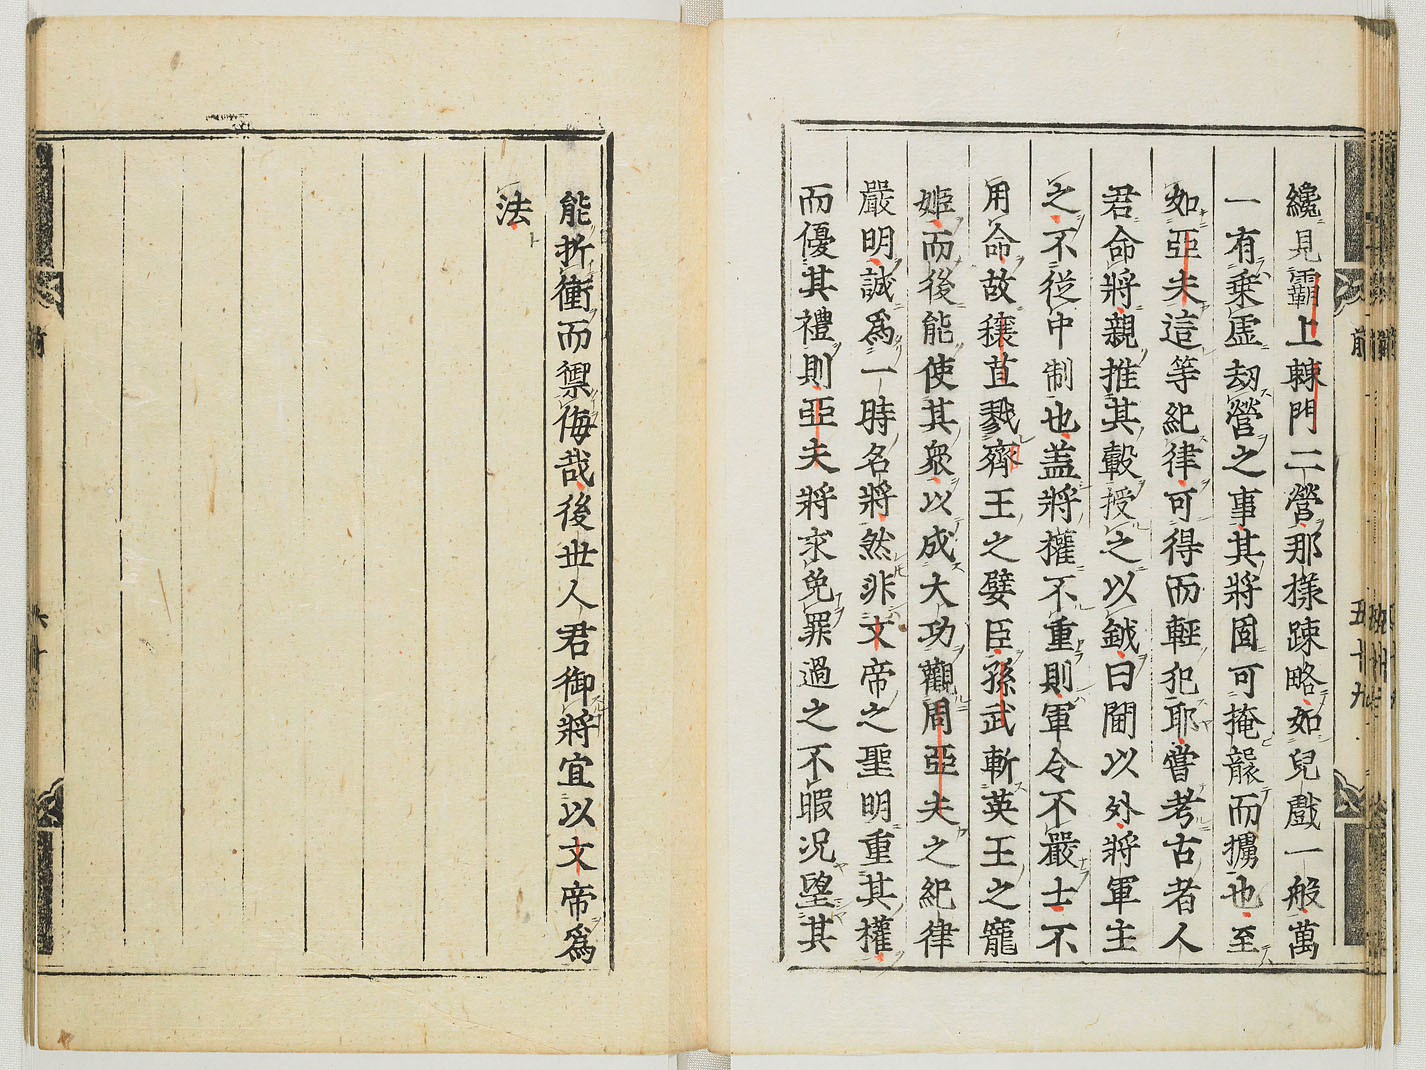 纔見霸上棘門二營那樣踈略如兒戲一般萬
一有乗虛刼營之事其將固可掩襲而擄也至
如亞夫這等紀律可得而輕犯耶嘗考古者人
君命將親推其轂授之以鉞曰閫以外將軍主
之不從中制也盖將權不重則軍令不嚴士不
用命故穰苴戮齊王之嬖臣孫武斬英王之寵
姫而後能使其衆以成大功觀周亞夫之紀律
嚴明誠爲一時名將然非文帝之聖明重其權
而優其禮則亞夫將求免罪過之不暇况望其
能折衝而禦侮哉後世人君御將宜以文帝爲
法
前
五十九